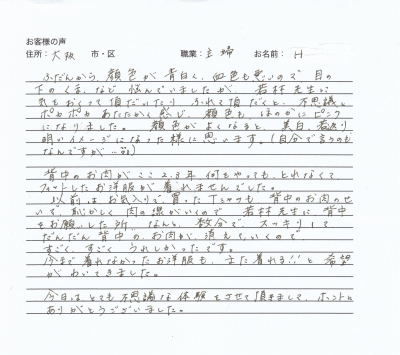 お客様の声
住所: 大阪 市・区 職業: 主婦 お名前: H
ふだんから、顔色が青白く、血色も悪いので目の
下のくまなど悩んでいましたが、若林先生に
気をおくって頂だいたり、ふれて頂だくと、不思議と
ポカポカあたたかく感じ、顔色もほのかにピンク
になりました。顔色がよくなると、美白、若返り
明いイメージになった様に思います。(自分で言うのも
なんですが…笑)
背中のお肉がここ2、3年何をやっても、とれなくて
フィットしたお洋服が着れませんでした。
以前はお気入りで買ったTシャツも背中のお肉のせ
いで、恥かしく肉の線がいくので若林先生に背中
をお願いした所、なんと、数分で、スッキリして
だんだん背中のお肉が消えていくので
すごくすごくうれしかったです。
今まで着れなかったお洋服も、また着れる!!と希望
がわいてきました。
今日はとても不思議な体験をさせて頂きまして、ホントに
ありがとうございました。